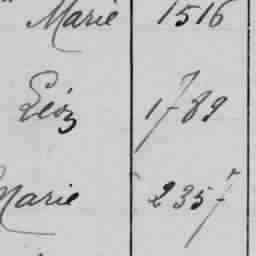 Marie 1516
Léon 1789
Marie 2357